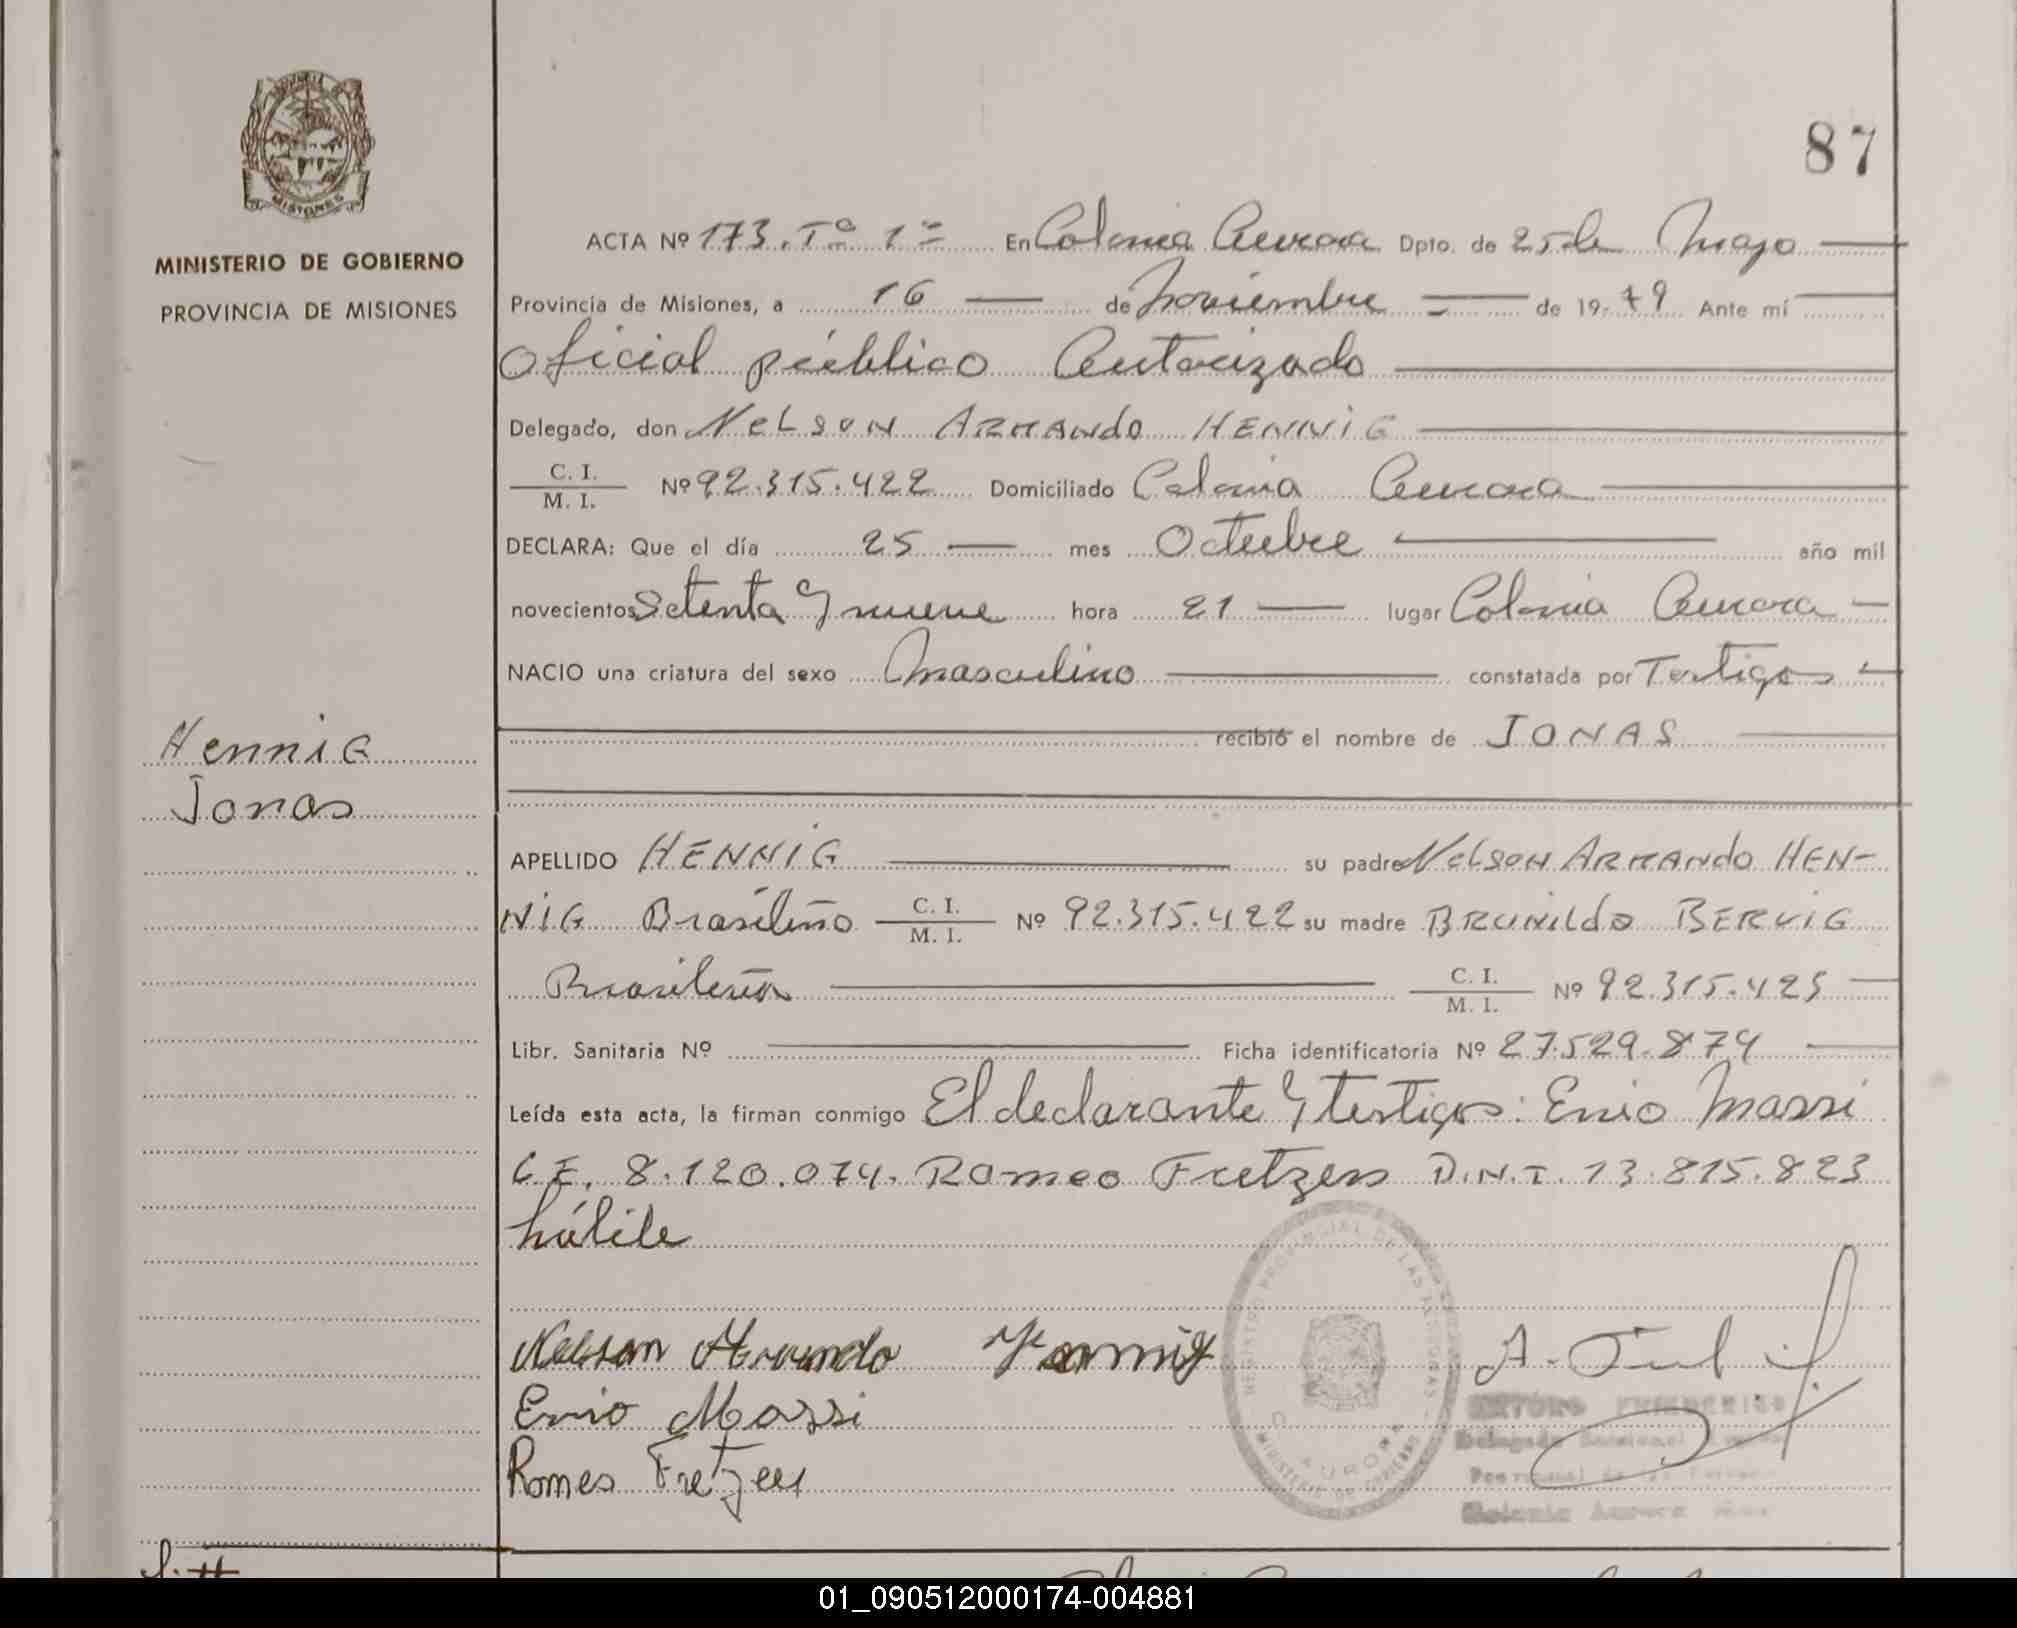 87
MINISTERIO DE GOBIERNO
PROVINCIA DE MISIONES
ACTA Nº 173. Tº 1º En Colonia Aurora Dpto. de 25 de Mayo
Provincia de Misiones, a 16 de Noviembre de 19 79 Ante mí
Oficial público Autorizado
Delegado, don NELSON ARMANDO HENNIG
C. I. / M. I. Nº 92.315.422 Domiciliado Colonia Aurora
DECLARA: Que el día 25 mes Octubre año mil
novecientos Setenta y nueve hora 21 lugar Colonia Aurora
NACIO una criatura del sexo Masculino constatada por Testigos
recibió el nombre de JONAS
Hennig
Jonas
APELLIDO HENNIG su padre NELSON ARMANDO HEN-
NIG Brasileño C. I. / M. I. Nº 92.315.422 su madre BRUNILDA BERVIG
Brasileña C. I. / M. I. Nº 92.315.425
Libr. Sanitaria Nº Ficha identificatoria Nº 27.529.874
Leída esta acta, la firman conmigo El declarante y testigos: Enio Massi
C.E. 8.120.074. Romeo Fretzen D.N.I. 13.815.823
hábile
Nelson Armando Hennig
Enio Massi
Romeo Fretzen
REGISTRO PROVINCIAL DE LAS PERSONAS
AURORA
MINISTERIO DE GOBIERNO
01_090512000174-004881